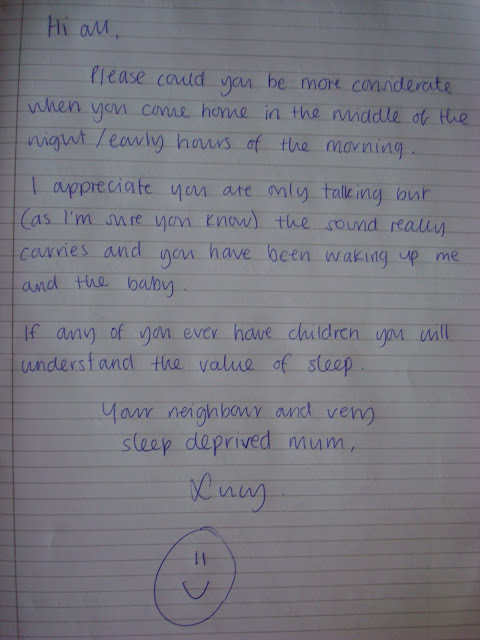 Hi all,
Please could you be more considerate
when you come home in the middle of the
night/early hours of the morning.
I appreciate you are only talking but
(as I'm sure you know) the sound really
carries and you have been waking up me
and the baby.
If any of you ever have children you will
understand the value of sleep.
Your neighbour and very
sleep deprived mum,
Lucy.